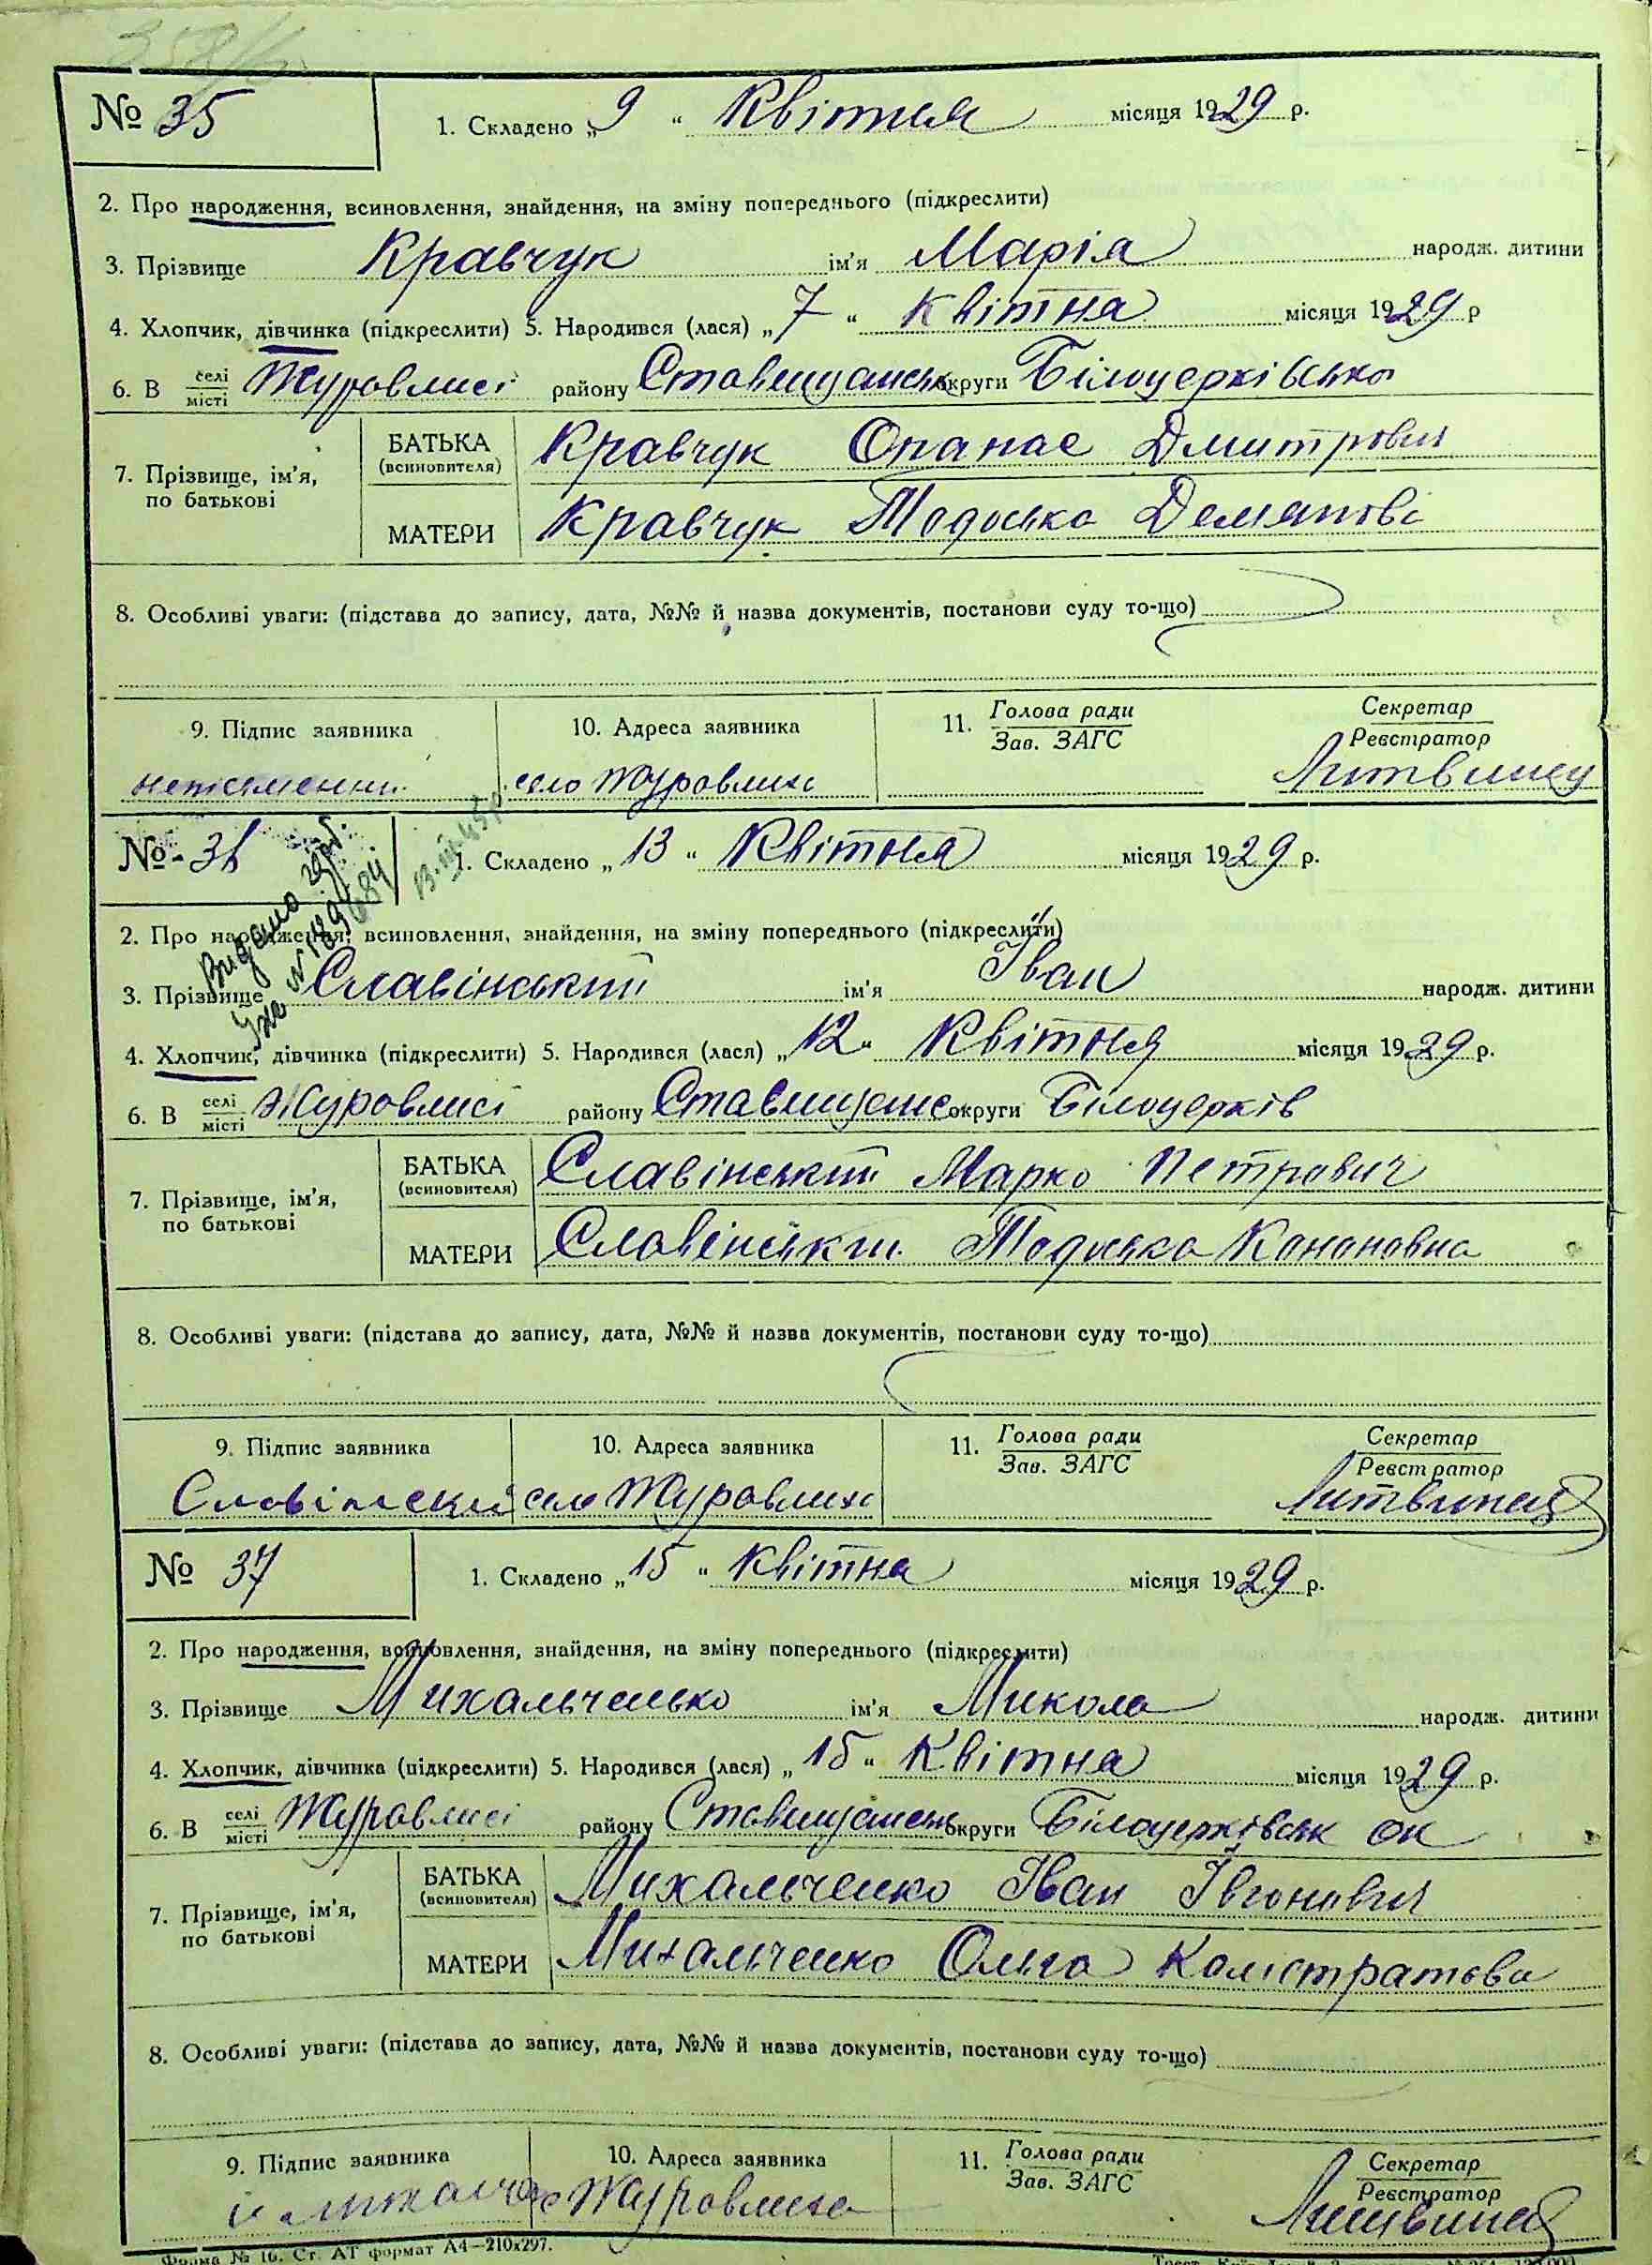 № 35
1. Складено „9“ Квітня місяця 1929 р.
2. Про народження, всиновлення, знайдення, на зміну попереднього (підкреслити)
3. Прізвище Кравчук ім'я Марія народж. дитини
4. Хлопчик, дівчинка (підкреслити) 5. Народився (лася) „7“ Квітня місяця 1929 р
6. В селі місті Журовлисі району Ставищанськ округи Білоцерківсько
7. Прізвище, ім'я, по батькові
БАТЬКА (всиновителя) Кравчук Опанас Дмитрович
МАТЕРИ Кравчук Тодоська Демянові
8. Особливі уваги: (підстава до запису, дата, №№ й назва документів, постанови суду то-що)
9. Підпис заявника 10. Адреса заявника 11. Голова ради Зав. ЗАГС Секретар Реєстратор
неписменни село Журовлиха Литвинец
№ 36
1. Складено „13“ Квітня місяця 1929 р.
Видано
2. Про народження, всиновлення, знайдення, на зміну попереднього (підкреслити)
3. Прізвище Славінський ім'я Іван народж. дитини
4. Хлопчик, дівчинка (підкреслити) 5. Народився (лася) „12“ Квітня місяця 1929 р.
6. В селі місті Журовлисі району Ставищанс округи Білоцерків
7. Прізвище, ім'я, по батькові
БАТЬКА (всиновителя) Славінський Марко Петрович
МАТЕРИ Славінськи Тодоська Кононовна
8. Особливі уваги: (підстава до запису, дата, №№ й назва документів, постанови суду то-що)
9. Підпис заявника 10. Адреса заявника 11. Голова ради Зав. ЗАГС Секретар Реєстратор
Славінский село Журовлиха Литвинец
№ 37
1. Складено „15“ Квітна місяця 1929 р.
2. Про народження, всиновлення, знайдення, на зміну попереднього (підкреслити)
3. Прізвище Михальченько ім'я Микола народж. дитини
4. Хлопчик, дівчинка (підкреслити) 5. Народився (лася) „15“ Квітна місяця 1929 р.
6. В селі місті Журовлисі району Ставищанськ округи Білоцерківськ ок
7. Прізвище, ім'я, по батькові
БАТЬКА (всиновителя) Михальченко Іван
МАТЕРИ Михальченко Ольга Калістратова
8. Особливі уваги: (підстава до запису, дата, №№ й назва документів, постанови суду то-що)
9. Підпис заявника 10. Адреса заявника 11. Голова ради Зав. ЗАГС Секретар Реєстратор
Журовлиха Литвинец
Форма № 16. Ст. АТ формат А4—210x297.